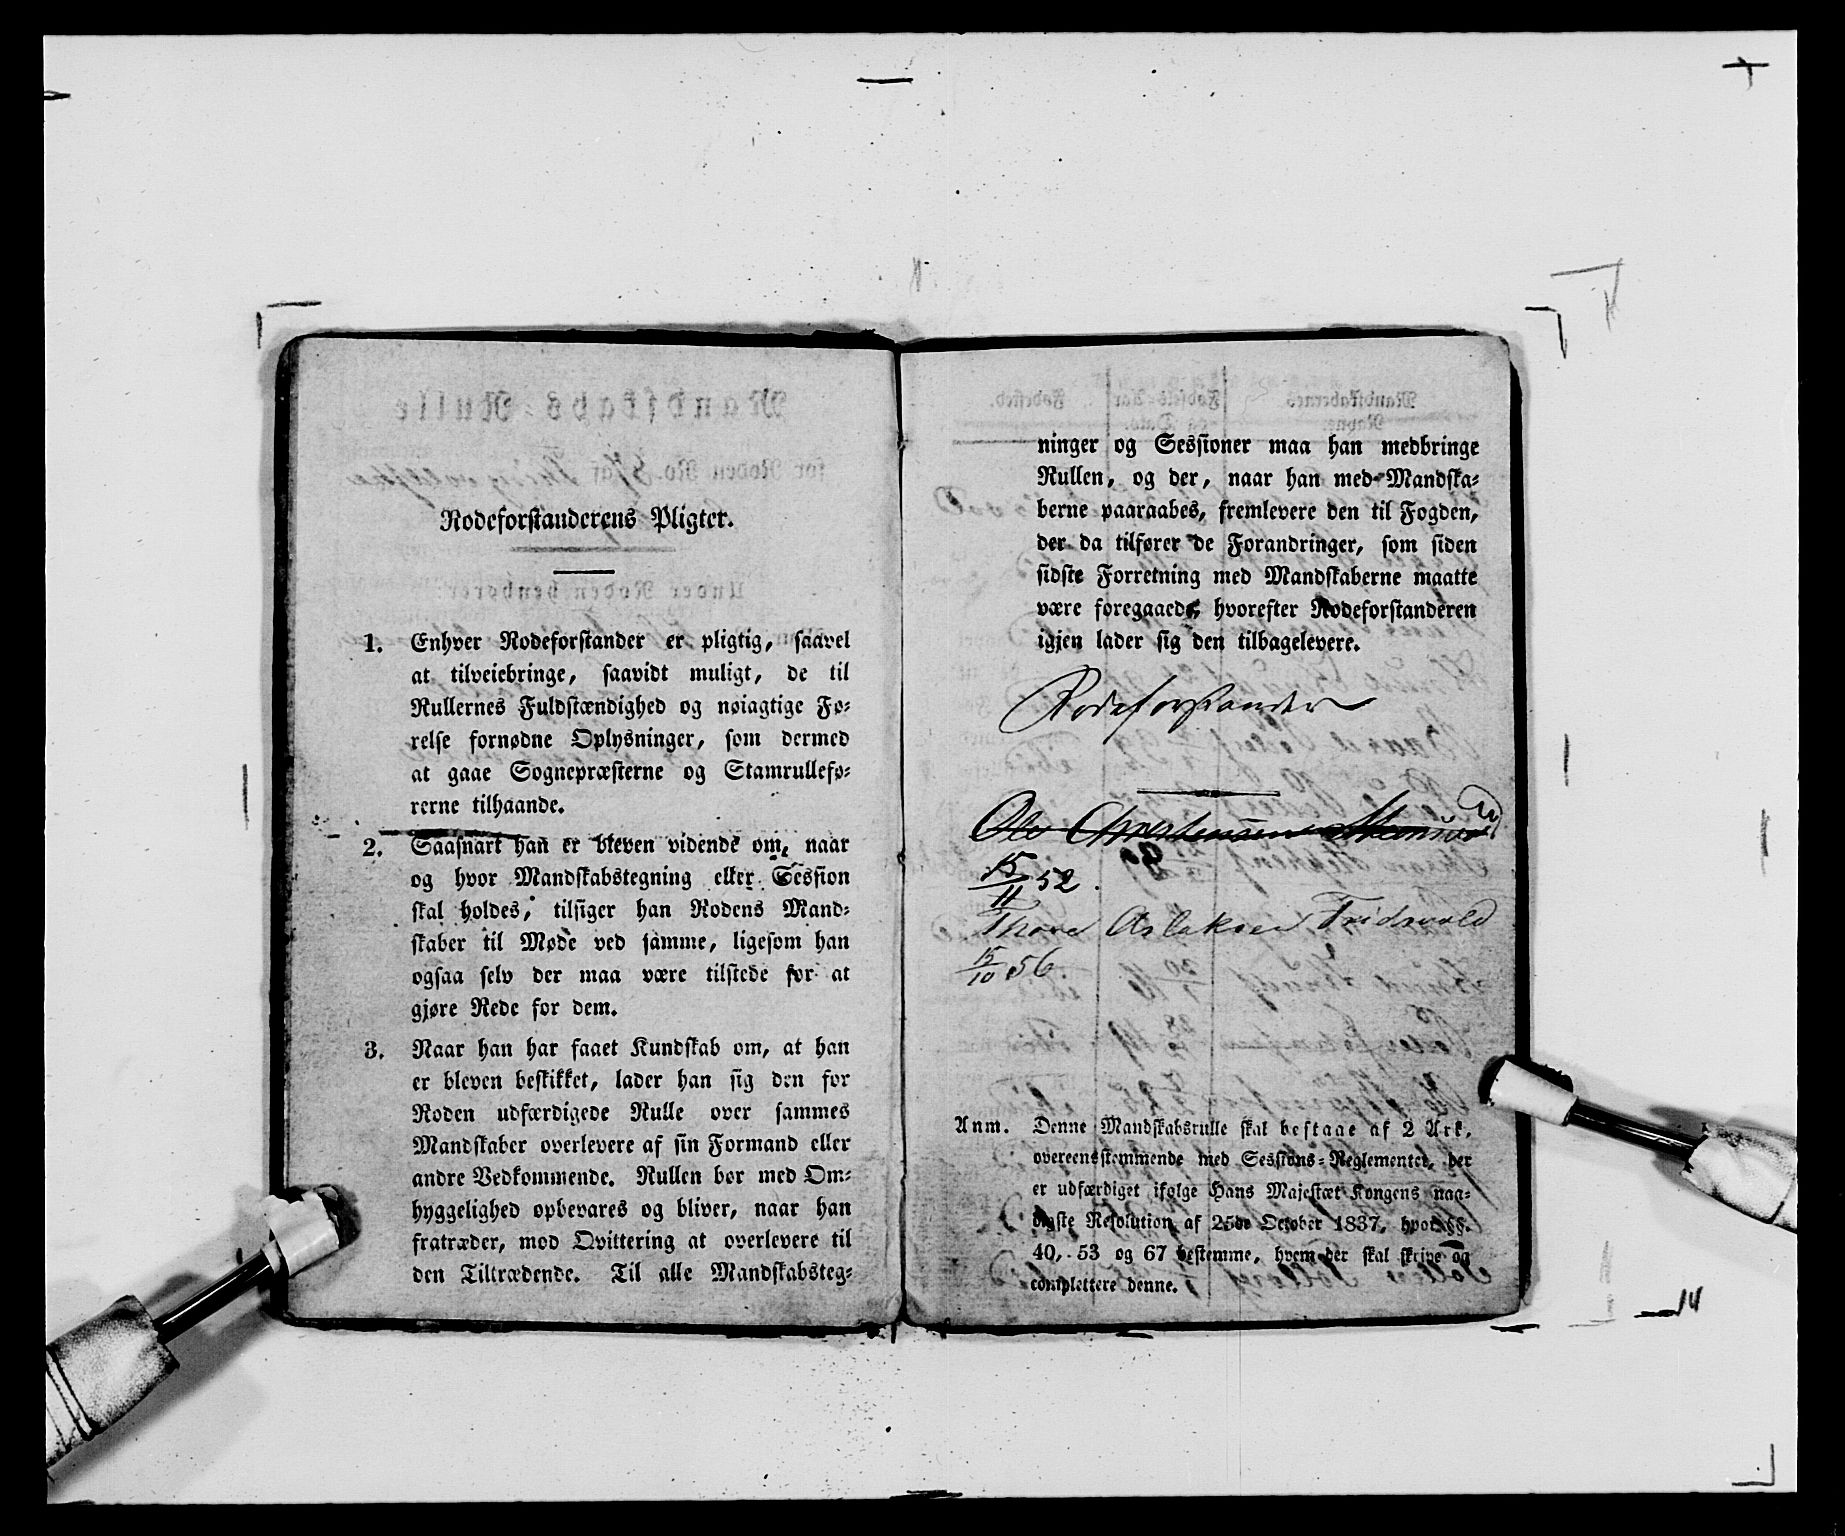 Rodeforstanderens Pligter.
1. Enhver Rodeforstander er pligtig, saavel
at tilveiebringe, saavidt muligt, de til
Rullernes Fuldstændighed og nøiagtige Fø-
relse fornødne Oplysninger, som dermed
at gaae Sognepræsterne og Stamrullefø-
rerne tilhaande.
2. Saasnart han er bleven vidende om, naar
og hvor Mandskabstegning eller Session
skal holdes, tilsiger han Rodens Mand-
skaber til Møde ved samme, ligesom han
ogsaa selv der maa være tilstede for at
gjøre Rede for dem.
3. Naar han har faaet Kundskab om, at han
er bleven beskikket, lader han sig den for
Roden udfærdigede Rulle over sammes
Mandskaber overlevere af sin Formand eller
andre Vedkommende. Rullen bør med Om-
hyggelighed opbevares og bliver, naar han
fratræder, mod Qvittering at overlevere til
den Tiltrædende. Til alle Mandskabsteg-
ninger og Sessioner maa han medbringe
Rullen, og der, naar han med Mandska-
berne paaraabes, fremlevere den til Fogden,
der da tilfører de Forandringer, som siden
sidste Forretning med Mandskaberne maatte
være foregaaede, hvorefter Rodeforstanderen
igjen lader sig den tilbagelevere.
Rodeforstander
Ole Christensen
15/11 52.
Thore Aslaksen Fridsvold
15/10 56.
Anm. Denne Mandskabsrulle skal bestaae af 2 Ark,
overeensstemmende med Sessions-Reglementet, der
er udfærdiget ifølge Hans Majestæt Kongens naa-
digste Resolution af 25de October 1837, hvor §§.
40, 53 og 67 bestemme, hvem der skal skrive og
complettere denne.
14